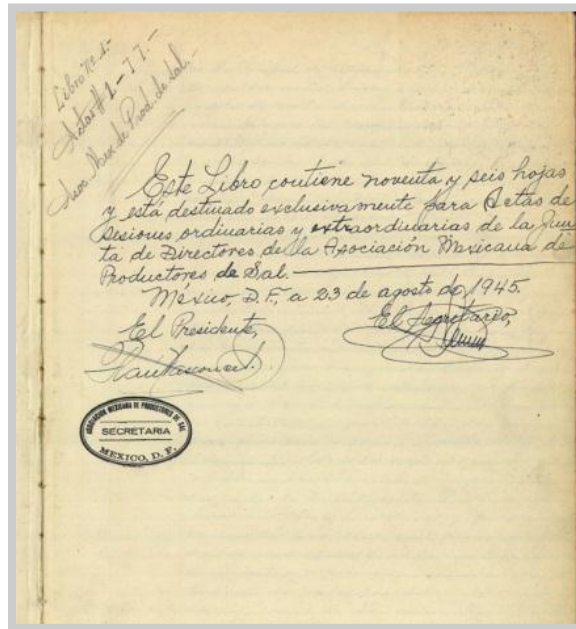 Libro No. 1-
Actas # 1-77.-
Asoc. Mex. de Prod. de Sal.
Este Libro contiene noventa y seis hojas
y está destinado exclusivamente para Actas de
sesiones ordinarias y extraordinarias de la Jun
ta de Directores de la Asociación Mexicana de
Productores de Sal.
México, D.F., a 23 de agosto de 1945.
El Presidente,
El Secretario,
ASOCIACION MEXICANA DE PRODUCTORES DE SAL
SECRETARIA
MEXICO, D. F.